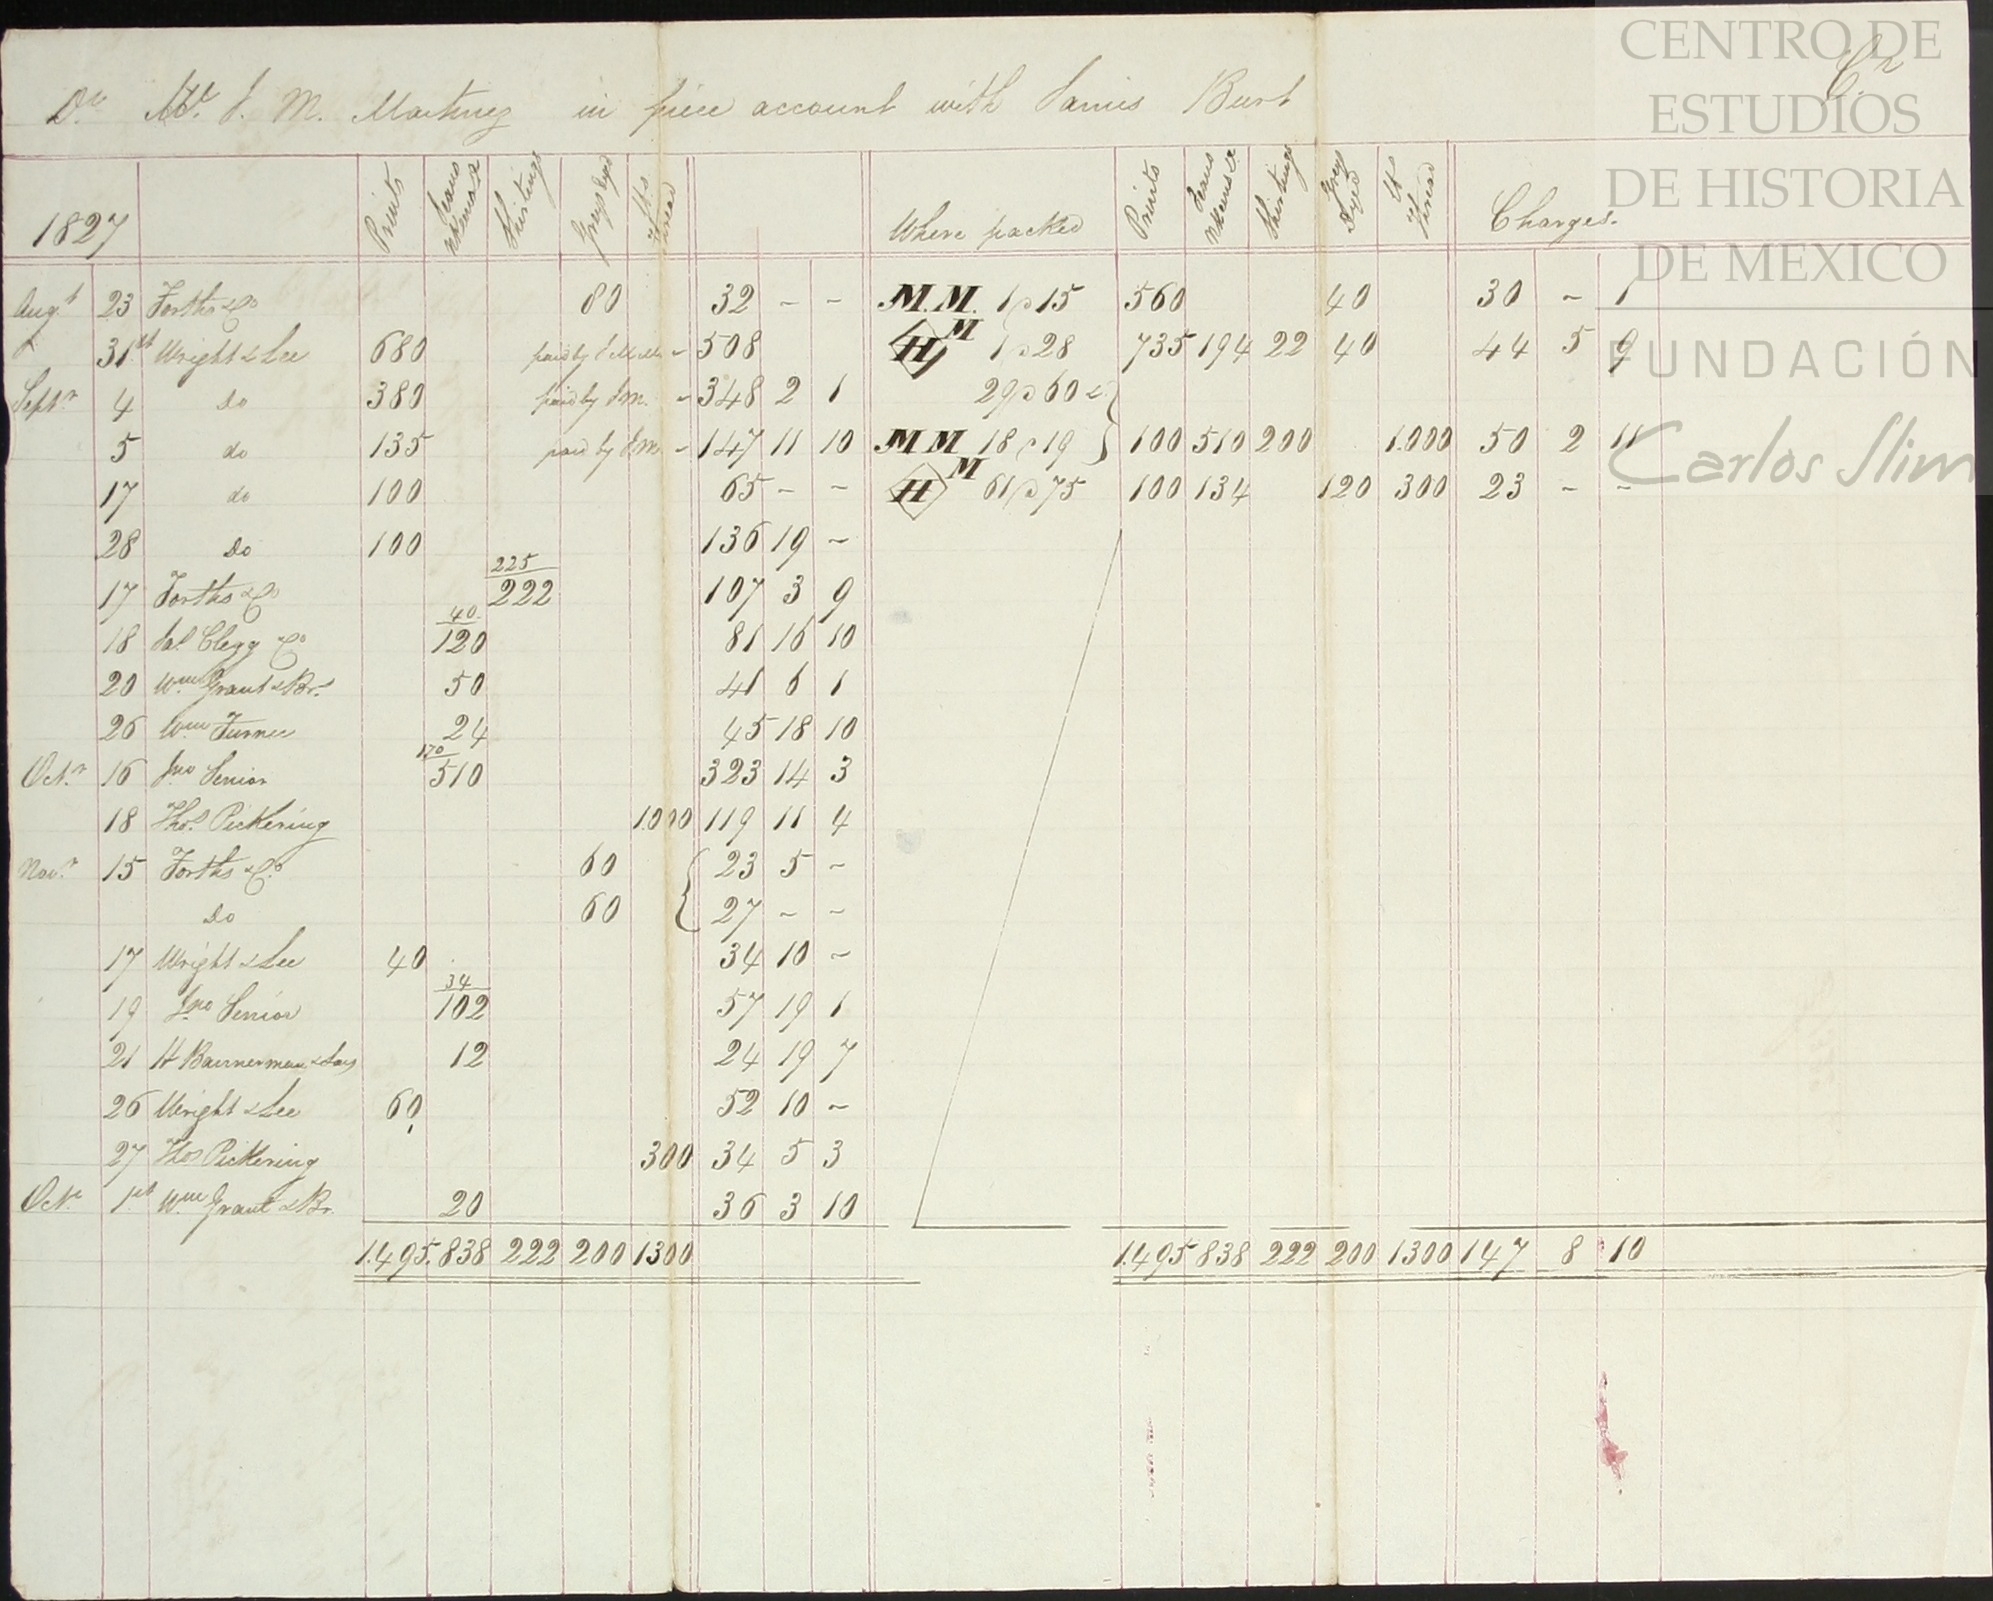 Dr. Mr. J. M. Martinez in piece account with James Burt Cr
1827 Prints Jeans Shirtings Greys Dyed lbs Thread Where packed Prints Jeans Shirtings Greys Dyed lb Thread Charges.
Augt 23 Forths & Co 80 32 - - M.M. 1 @ 15 560 40 30 - 1
31st Wright & Lee 680 paid by J M M - 508 H M 1 @ 28 735 194 22 40 44 5 9
Septr 4 Do 380 paid by JM. - 348 2 1 29 @ 60 &
5 do 135 paid by JM - 147 11 10 M M 18 @ 19 100 510 200 1.000 50 2 11
17 do 100 65 - - H M 61 @ 75 100 134 120 300 23 - -
28 Do 100 136 19 -
225
17 Forths & Co 222 107 3 9
40
18 Jas. Clegg & Co 120 81 16 10
20 Wm Grant & Brs 50 41 6 1
26 Wm Turner 24 45 18 10
170
Octr 16 Jno Senior 510 323 14 3
18 Thos. Pickering 1.000 119 11 4
Novr 15 Forths & Co. 60 23 5 -
Do 60 27 - -
17 Wright & Lee 40 34 10 -
34
19 Jno Senior 102 57 19 1
21 H Bannerman & Sons 12 24 19 7
26 Wright & Lee 60 52 10 -
27 Thos Pickering 300 34 5 3
Octr 1st Wm Grant & Br. 20 36 3 10
1.495. 838 222 200 1300 1.495 838 222 200 1300 147 8 10
CENTRO DE
ESTUDIOS
DE HISTORIA
DE MEXICO
FUNDACIÓN
Carlos Slim